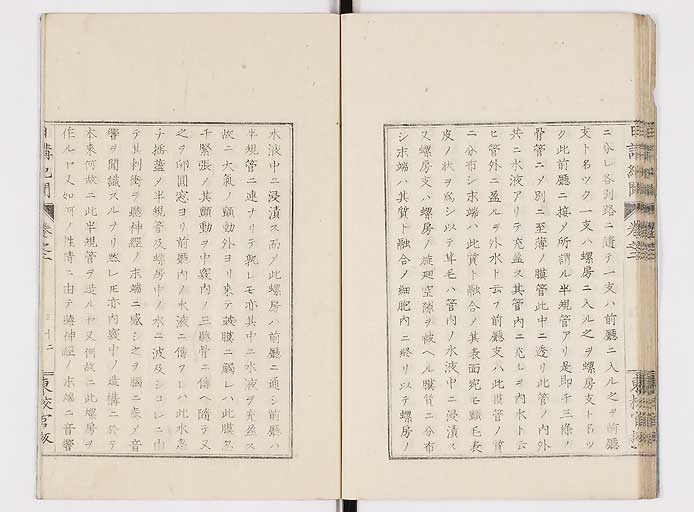 日講紀聞 卷之二
東校官板
ニ分レ各別路ニ遵テ一支ハ前廳ニ入ル之ヲ前廳
支ト名ツク一支ハ螺房ニ入ル之ヲ螺房支ト名ツ
ク此前廳ニ接ノ所謂ル半規管アリ是即チ三條ノ
骨管ニノ別ニ至薄ノ膜管此中ニ透リ此管ノ内外
共ニ水液アリテ充盈ス其管内ニ充レヲ内水ト云
ヒ管外ニ盈ルヲ外水ト云フ前廳支ハ此膜管ノ質
ニ分布シ末端ハ此質ト融合ノ其表面宛モ顫毛表
皮ノ状ヲ為シ以テ茸毛ハ管内ノ水液中ニ浸漬ス
又螺房支ハ螺房ノ旋廻空隙ヲ被ヘル膜質ニ分布
シ末端ハ其質ト融合ノ細胞内ニ終リ以テ螺房ノ
水液中ニ浸漬ス而ノ此螺房ハ前廳ニ通シ前廳ハ
半規管ニ連ナリテ孰レモ亦其中ニ水液ヲ充盈ス
故ニ大氣ノ顫動外ヨリ來テ鼓膜ニ觸レハ此膜為
千緊張ノ其顫動ヲ中竅内ノ三聽骨ニ傳ヘ隨テ又
之ヲ卵圓窓ヨリ前廳内ノ水液ニ傳フレハ此水差
チ揺蕩ノ半規管及螺房中ノ水ニ波及シコレニ由
テ其刺衝ヲ聽神經ノ末端ニ感シ之ヲ腦ニ奏ノ音
響ヲ聞識スルナリ然レ𪜈亦内竅中ノ造構ニ於テ
本來何故ニ此半規管ヲ造ルヤ又何故ニ此螺房ヲ
作ルヤ又如何ノ性情ニ由テ聽神經ノ末端ニ音響
日講紀聞 卷之二
三十二
東校官板